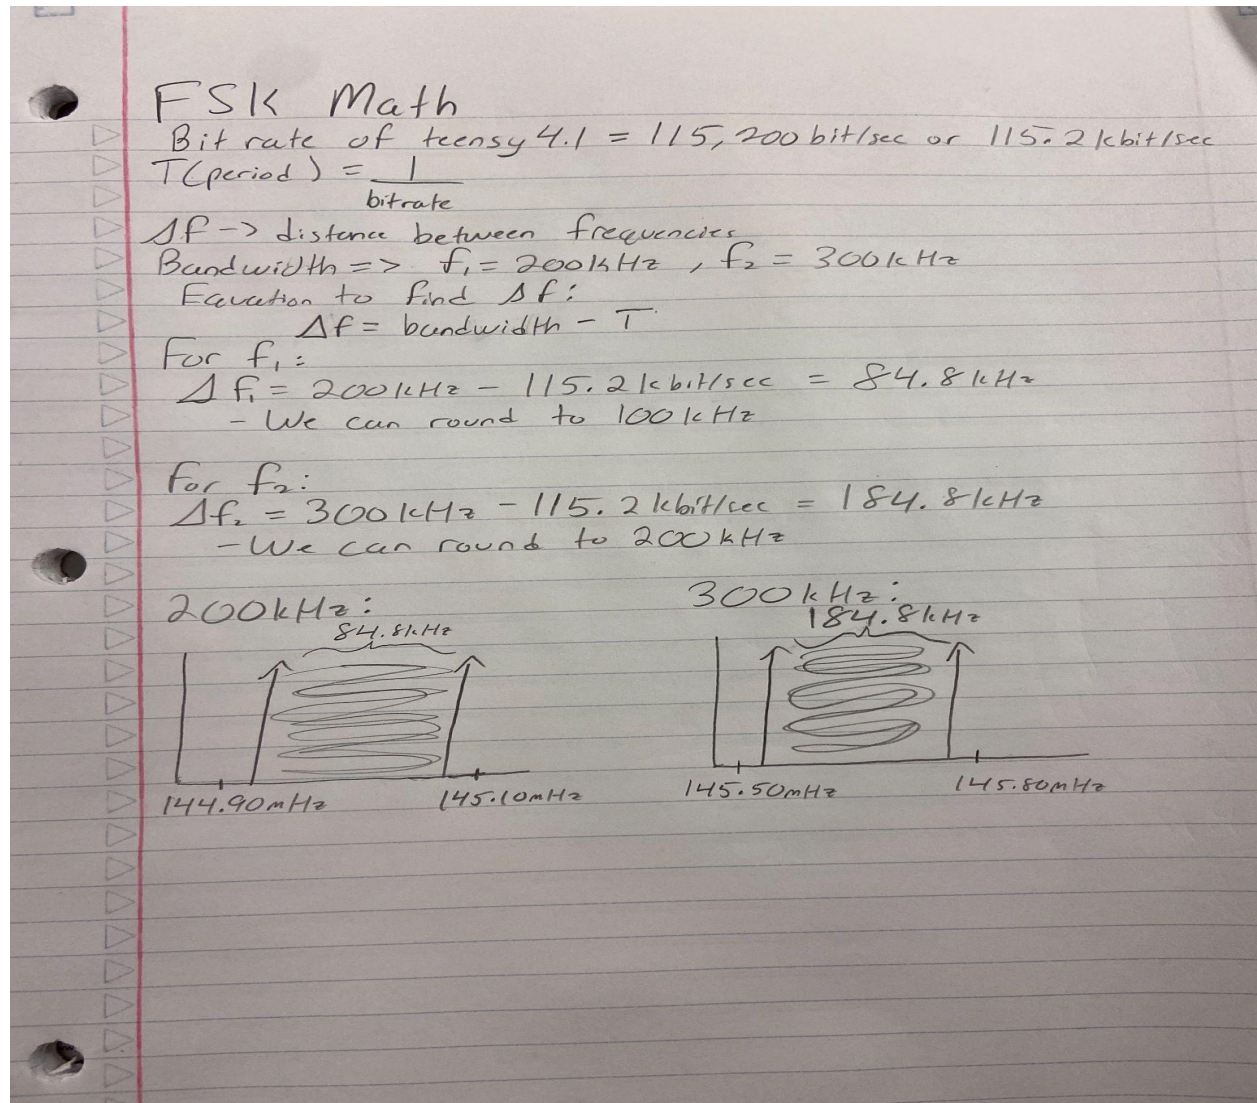 FSK Math
Bit rate of teensy 4.1 = 115,200 bit/sec or 115.2 kbit/sec
T(period) = 1
bitrate
Δf -> distance between frequencies
Bandwidth => f₁ = 200kHz , f₂ = 300kHz
Equation to find Δf:
Δf = bandwidth - T
For f₁:
Δf₁ = 200kHz - 115.2 kbit/sec = 84.8 kHz
- We can round to 100kHz
For f₂:
Δf₂ = 300kHz - 115.2 kbit/sec = 184.8kHz
- We can round to 200kHz
200kHz: 300kHz:
84.8kHz 184.8kHz
144.90mHz 145.10mHz 145.50mHz 145.80mHz